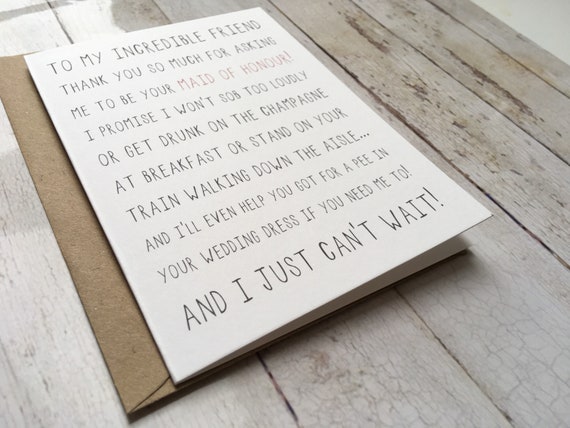 TO MY INCREDIBLE FRIEND
THANK YOU SO MUCH FOR ASKING
ME TO BE YOUR MAID OF HONOUR!
I PROMISE I WON'T SOB TOO LOUDLY
OR GET DRUNK ON THE CHAMPAGNE
AT BREAKFAST OR STAND ON YOUR
TRAIN WALKING DOWN THE AISLE...
AND I'LL EVEN HELP YOU GOT FOR A PEE IN
YOUR WEDDING DRESS IF YOU NEED ME TO!
AND I JUST CAN'T WAIT!